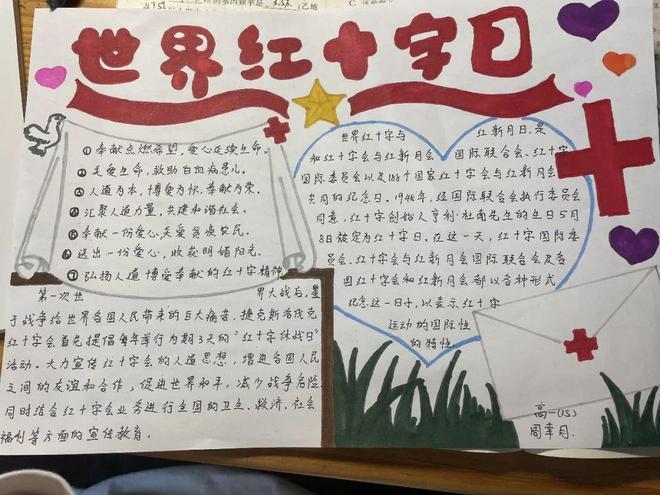 世界红十字日
① 奉献点燃希望,爱心延续生命。
② 关爱生命,救助白血病患儿。
③ 人道为本,博爱为怀,奉献为荣。
④ 汇聚人道力量,共建和谐社会。
⑤ 奉献一份爱心,关爱贫疾农民。
⑥ 送出一份爱心,收获明媚阳光。
⑦ 弘扬人道 博爱奉献的红十字精神
第一次世界大战后,鉴
于战争给世界各国人民带来的巨大病害,捷克斯洛伐克
红十字会首先提倡每年举行为期3天的“红十字休战日”
活动。大力宣传红十字会的人道思想,增进各国人民
之间的友谊和合作,促进世界和平,减少战争危险
同时结合红十字会业务进行全国的卫生、救济、社会
福利等方面的宣传教育。
世界红十字与红新月日,是
和红十字会与红新月会国际联合会、红十字
国际委员会以及186个国家红十字会与红新月会
共同的纪念日。1948年,经国际联合会执行委员会
同意,红十字创始人亨利·杜南先生的生日5月
8日被定为红十字日。在这一天,红十字国际委
员会、红十字会与红新月会国际联合会及各
国红十字会和红新月会都以各种形式
纪念这一日子,以表示红十字
运动的国际性
的特性。
高一(15)
周幸月.